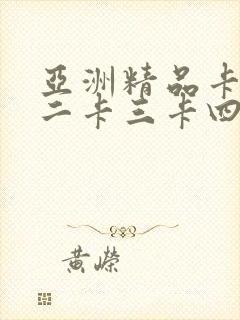 亞洲精品卡
二卡三卡四
黃嶸